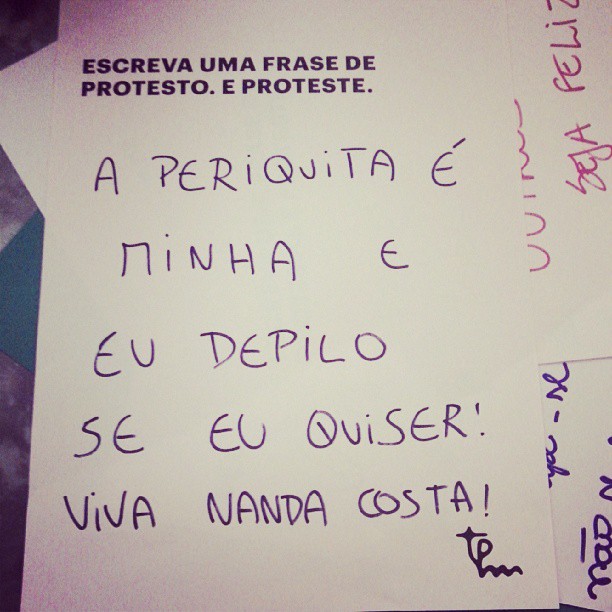 ESCREVA UMA FRASE DE
PROTESTO. E PROTESTE.
A PERIQUITA É
MINHA E
EU DEPILO
SE EU QUISER!
VIVA NANDA COSTA!
SEJA FELIZ